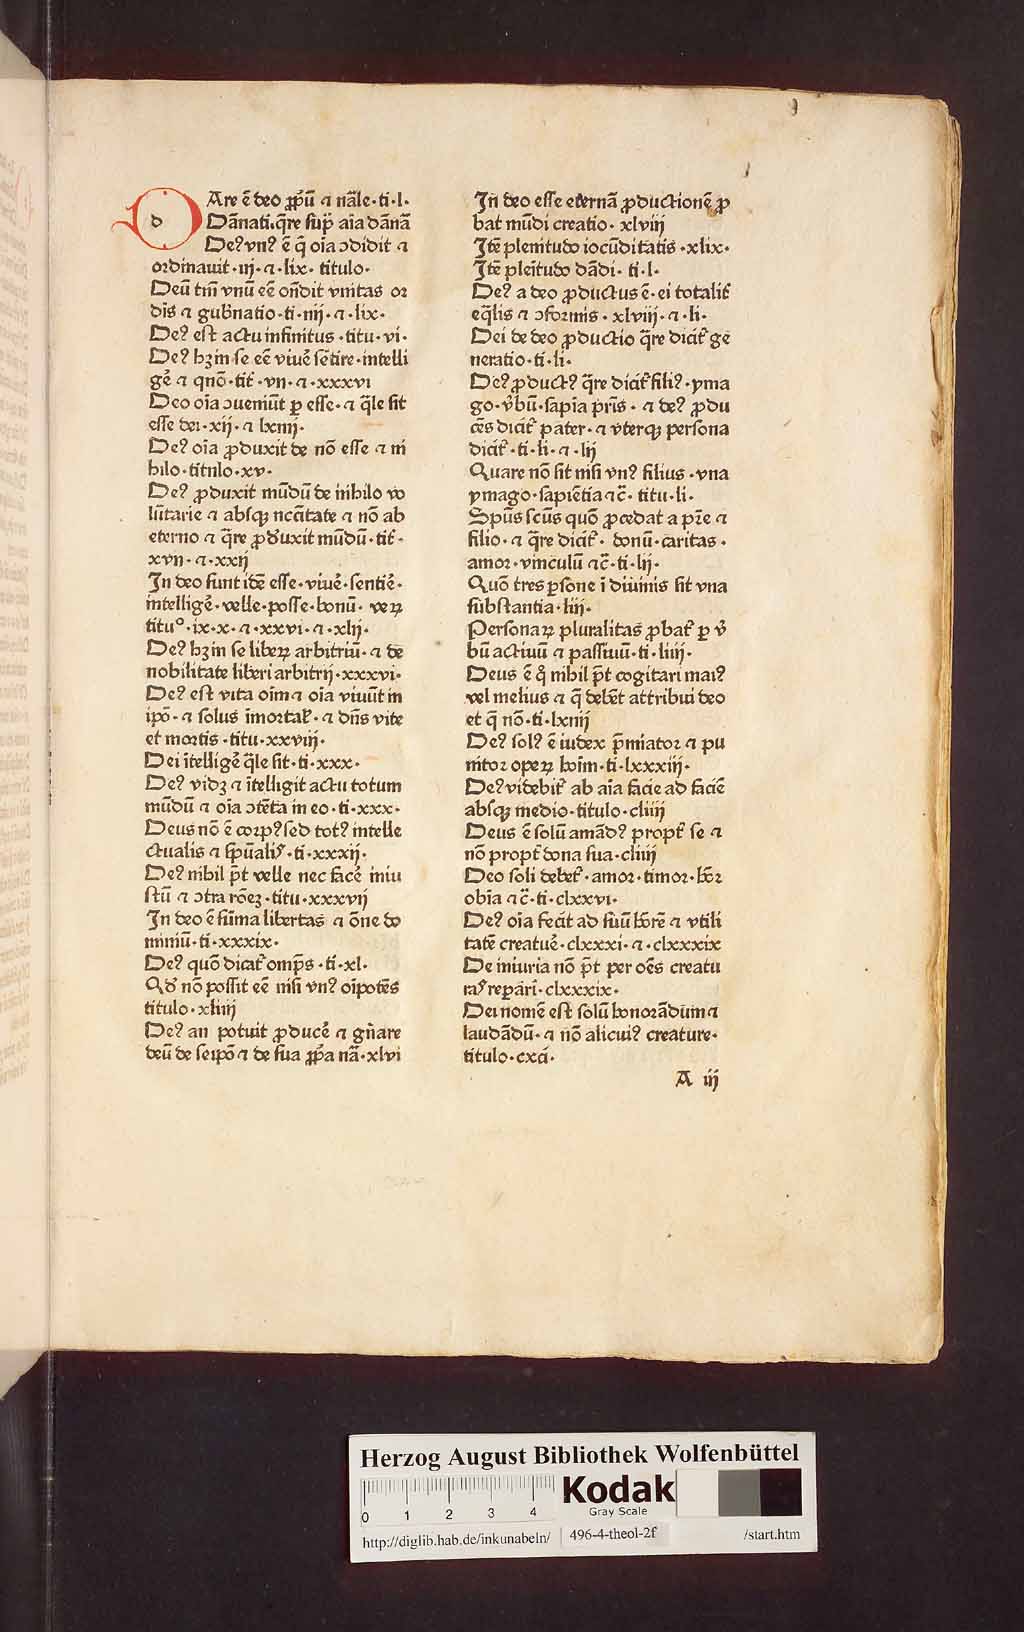 DAre ē deo ꝓpͥū ⁊ nāle·ti·l·
Dānati.q̄re suꝑ aīa dānā
Deꝰ vnꝰ ē q̄ oīa ↄdidit ⁊
ordinauit·iij·⁊·lix· titulo·
Deū tm̄ vnū eē on̄dit vnitas or
dīs ⁊ gub̄natio·ti·iiij·⁊·lix·
Deꝰ est actu infinitus·titu·vi·
Deꝰ hꝫ in se eē viuē sētire·intelli
gē ⁊ qnō·tit̄·vii·⁊·xxxvi
Deo oīa ↄueniūt ꝑ esse·⁊ q̄le sit
esse dei·xij·⁊ lxiiij·
Deꝰ oīa ꝓduxit de nō esse ⁊ ni
hilo·titulo·xv·
Deꝰ ꝓduxit mūdū de nihilo vo
lūtarie ⁊ absqꝫ nccītate ⁊ nō ab
eterno ⁊ q̄re ꝓduxit mūdū·tit̄·
xvii·⁊·xxij
In deo sunt idē esse·viuē·sentiē·
intelligē·velle·posse·bonū·veꝝ
tituº·ix·x·⁊·xxvi·⁊·xlij·
Deꝰ hꝫ in se libeꝝ arbitriū·⁊ de
nobilitate liberi arbitrij·xxxvi·
Deꝰ est vita oīm ⁊ oīa viuūt in
ipō·⁊ solus īmortal̄·⁊ dn̄s vite
et mortis·titu·xxviij·
Dei ītelligē q̄le sit·ti·xxx·
Deꝰ videꝫ ⁊ ītelligit actu totum
mūdū ⁊ oīa ↄtēta in eo·ti·xxx·
Deus nō ē corpꝰ sed totꝰ intelle
ctualis ⁊ sp̄ualis·ti·xxxij·
Deꝰ nihil p̄t velle nec facē iniu
stū ⁊ ↄtra rōeꝫ·titu·xxxvij
In deo ē sūma libertas ⁊ ōne do
miniū·ti·xxxix·
Deꝰ quō dicat̄ omp̄s·ti·xl·
Qd̄ nō possit eē nisi vnꝰ oīpotēs
titulo·xliiij
Deꝰ an potuit ꝓducē ⁊ gn̄are
deū de seipō ⁊ de sua ꝓpͥa nā·xlvi
In deo esse eternā ꝓductionē ꝓ
bat mūdi creatio·xlviij
Itē plenitudo iocūditatis·xlix·
Itē plēitudo dādi·ti·l·
Deꝰ a deo ꝓductus ē·ei totalit̄
eq̄lis ⁊ ↄformis·xlviij·⁊·li·
Dei de deo ꝓductio q̄re dicit̄ ge
neratio·ti·li·
Deꝰ ꝓductꝰ q̄re dicit̄ filiꝰ·yma
go·v̄bū·sapīa pr̄is·⁊ deꝰ ꝓdu
cēs dicit̄ pater·⁊ vterqꝫ persona
dicit̄·ti·li·⁊·lij
Quare nō sit nisi vnꝰ filius·vna
ymago·sapiētia ⁊c̄·titu·li·
Spūs scūs quō ꝓcedat a pr̄e ⁊
filio·⁊ q̄re dicit̄·donū·caritas·
amor·vinculū ⁊c̄·ti·lij·
Quō tres ꝑsone ī diuinis sit vna
substantia·liij·
Personaꝝ pluralitas ꝓbat̄ ꝑ v̄
bū actiuū ⁊ passiuū·ti·liiij·
Deus ē qͦ nihil p̄t cogitari maiꝰ
vel melius ⁊ q̄ debēt attribui deo
et q̄ nō·ti·lxiiij
Deꝰ solꝰ ē iudex p̄miator ⁊ pu
nitor opeꝝ hoīm·ti·lxxxiij·
Deꝰ videbit̄ ab aīa facie ad faciē
absqꝫ medio·titulo·cliiij
Deus ē solū amādꝰ propt̄ se ⁊
nō propt̄ dona sua·cliiij
Deo soli debet̄·amor·timor·hōr
obīa ⁊c̄·ti·clxxvi·
Deꝰ oīa fecit ad suū hōrē ⁊ vtili
tatē creatuē·clxxxi·⁊·clxxxix
De iniuria nō p̄t per oēs creatu
ras reꝑari·clxxxix·
Dei nomē est solū honorādum ⁊
laudādū·⁊ nō alicuiꝰ creature·
titulo·cxci·
A iij
Herzog August Bibliothek Wolfenbüttel
0 1 2 3 4
Kodak
Gray Scale
http://diglib.hab.de/inkunabeln/ 496-4-theol-2f /start.htm